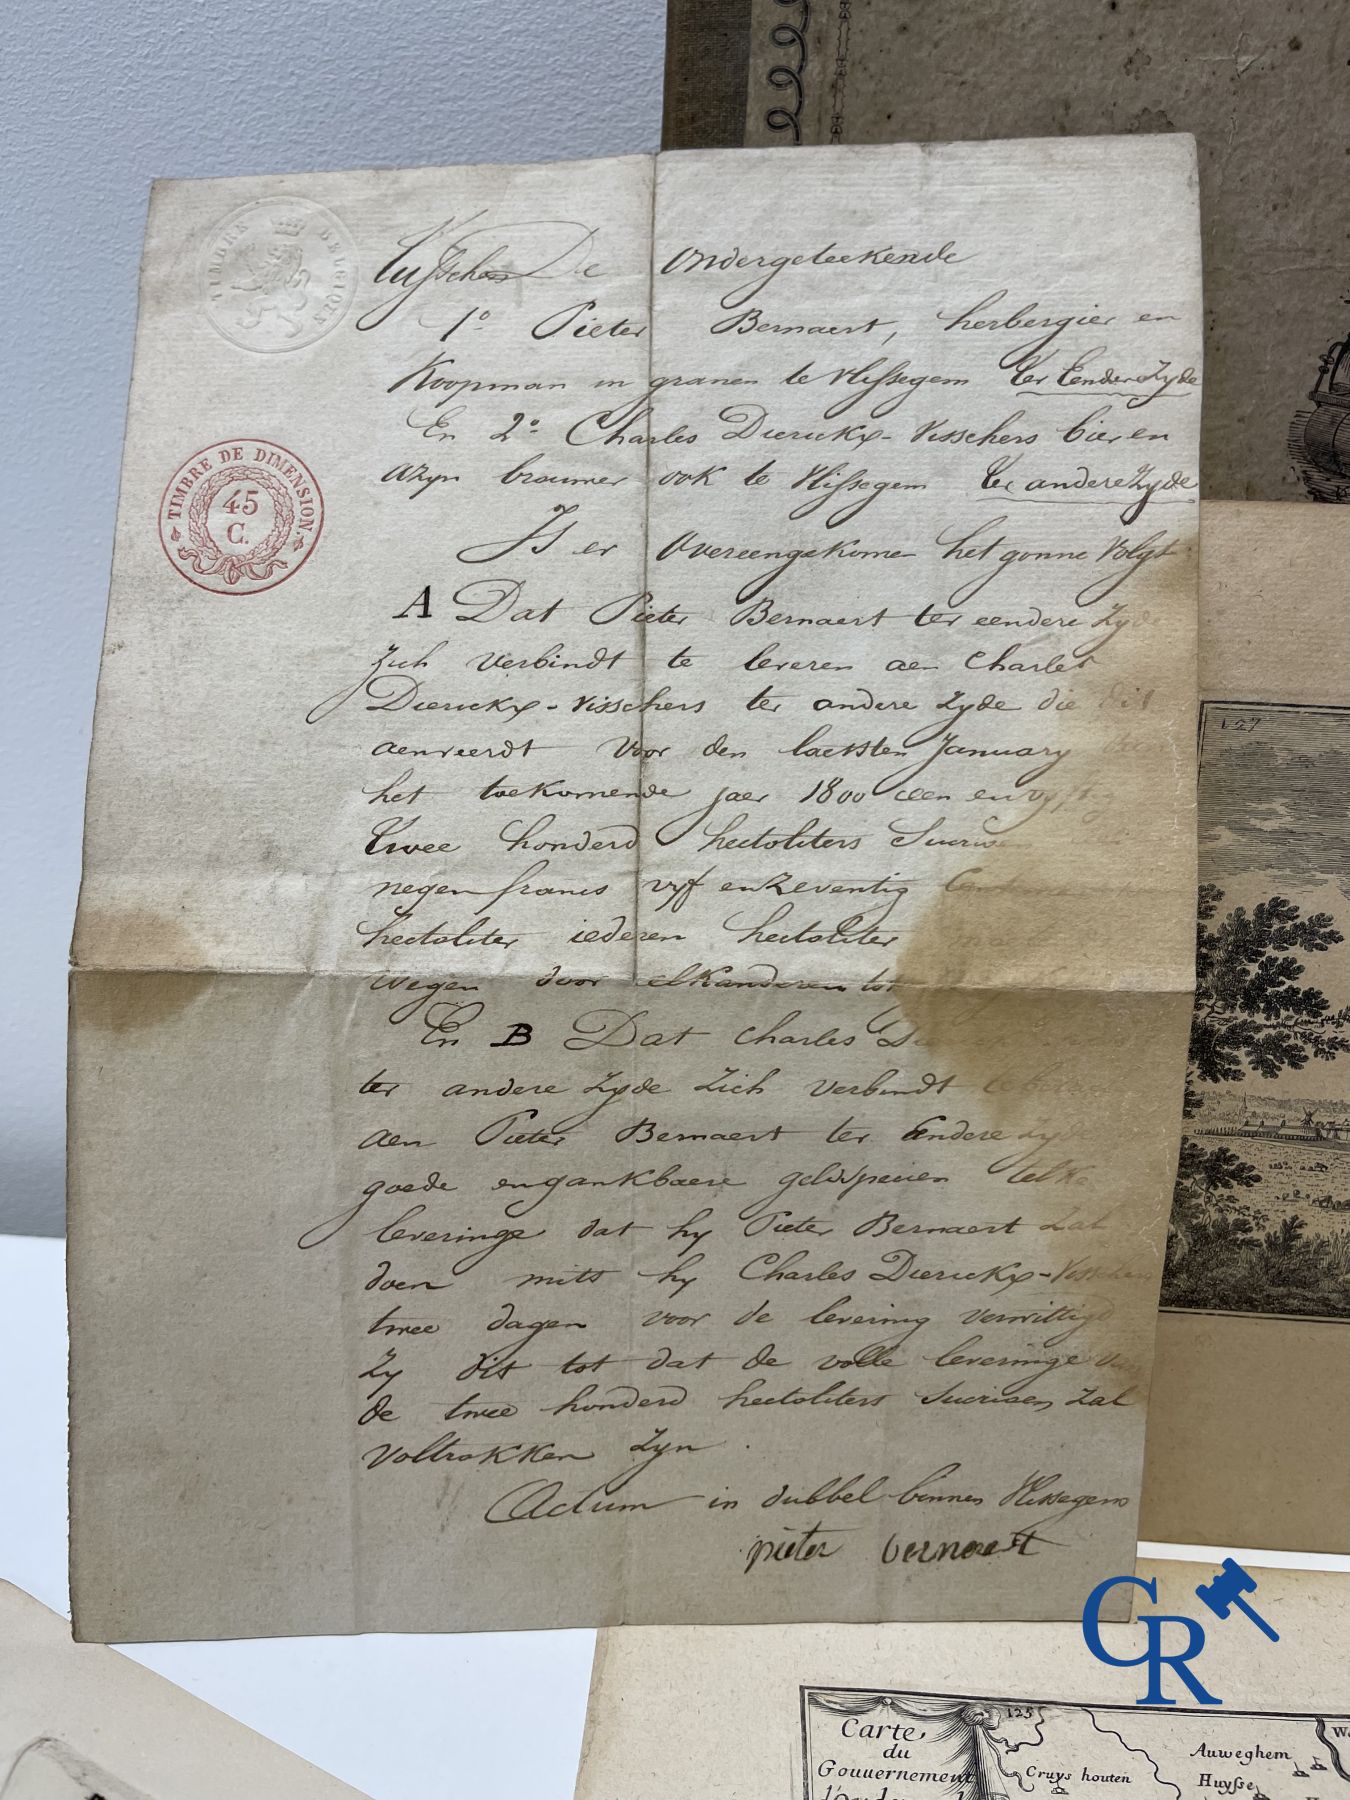 TIMBRE BELGIQUE
TIMBRE DE DIMENSION.
45
C.
Tusschen De Ondergeteekende
1° Pieter Bernaert, herbergier en
Koopman in granen te Vlissegem Ter Eender Zyde
En 2° Charles Dierickx-Visschers bier en
azyn brouwer ook te Vlissegem Ter andere Zyde
Is er Overeengekomen het gonne Volgt
A Dat Pieter Bernaert ter eendere Zyde
Zich verbindt te leveren aen Charles
Dierickx-Visschers ter andere Zyde die dit
aenveerdt voor den laetsten January
het toekomende jaer 1800 een en vyftig
Twee honderd hectoliters Sucrioen
negen francs vyf en zeventig
hectoliter iederen hectoliter
wegen door elkanderen tot
En B Dat Charles
ter andere Zyde Zich verbindt
aen Pieter Bernaert ter Eendere Zyde
goede en gankbaere geldspecien telke
leveringe dat hy Pieter Bernaert Zal
doen mits hy Charles Dierickx-Visschers
twee dagen voor de levering verwittigd
Zy dit tot dat de volle leveringe van
de twee honderd hectoliters Sucrioen Zal
voltrokken Zyn.
Actum in dubbel binnen Vlissegem
pieter bernaert
127
CR
125
Carte
du
Gouuernement
Cruys houten
Auweghem
Huysse